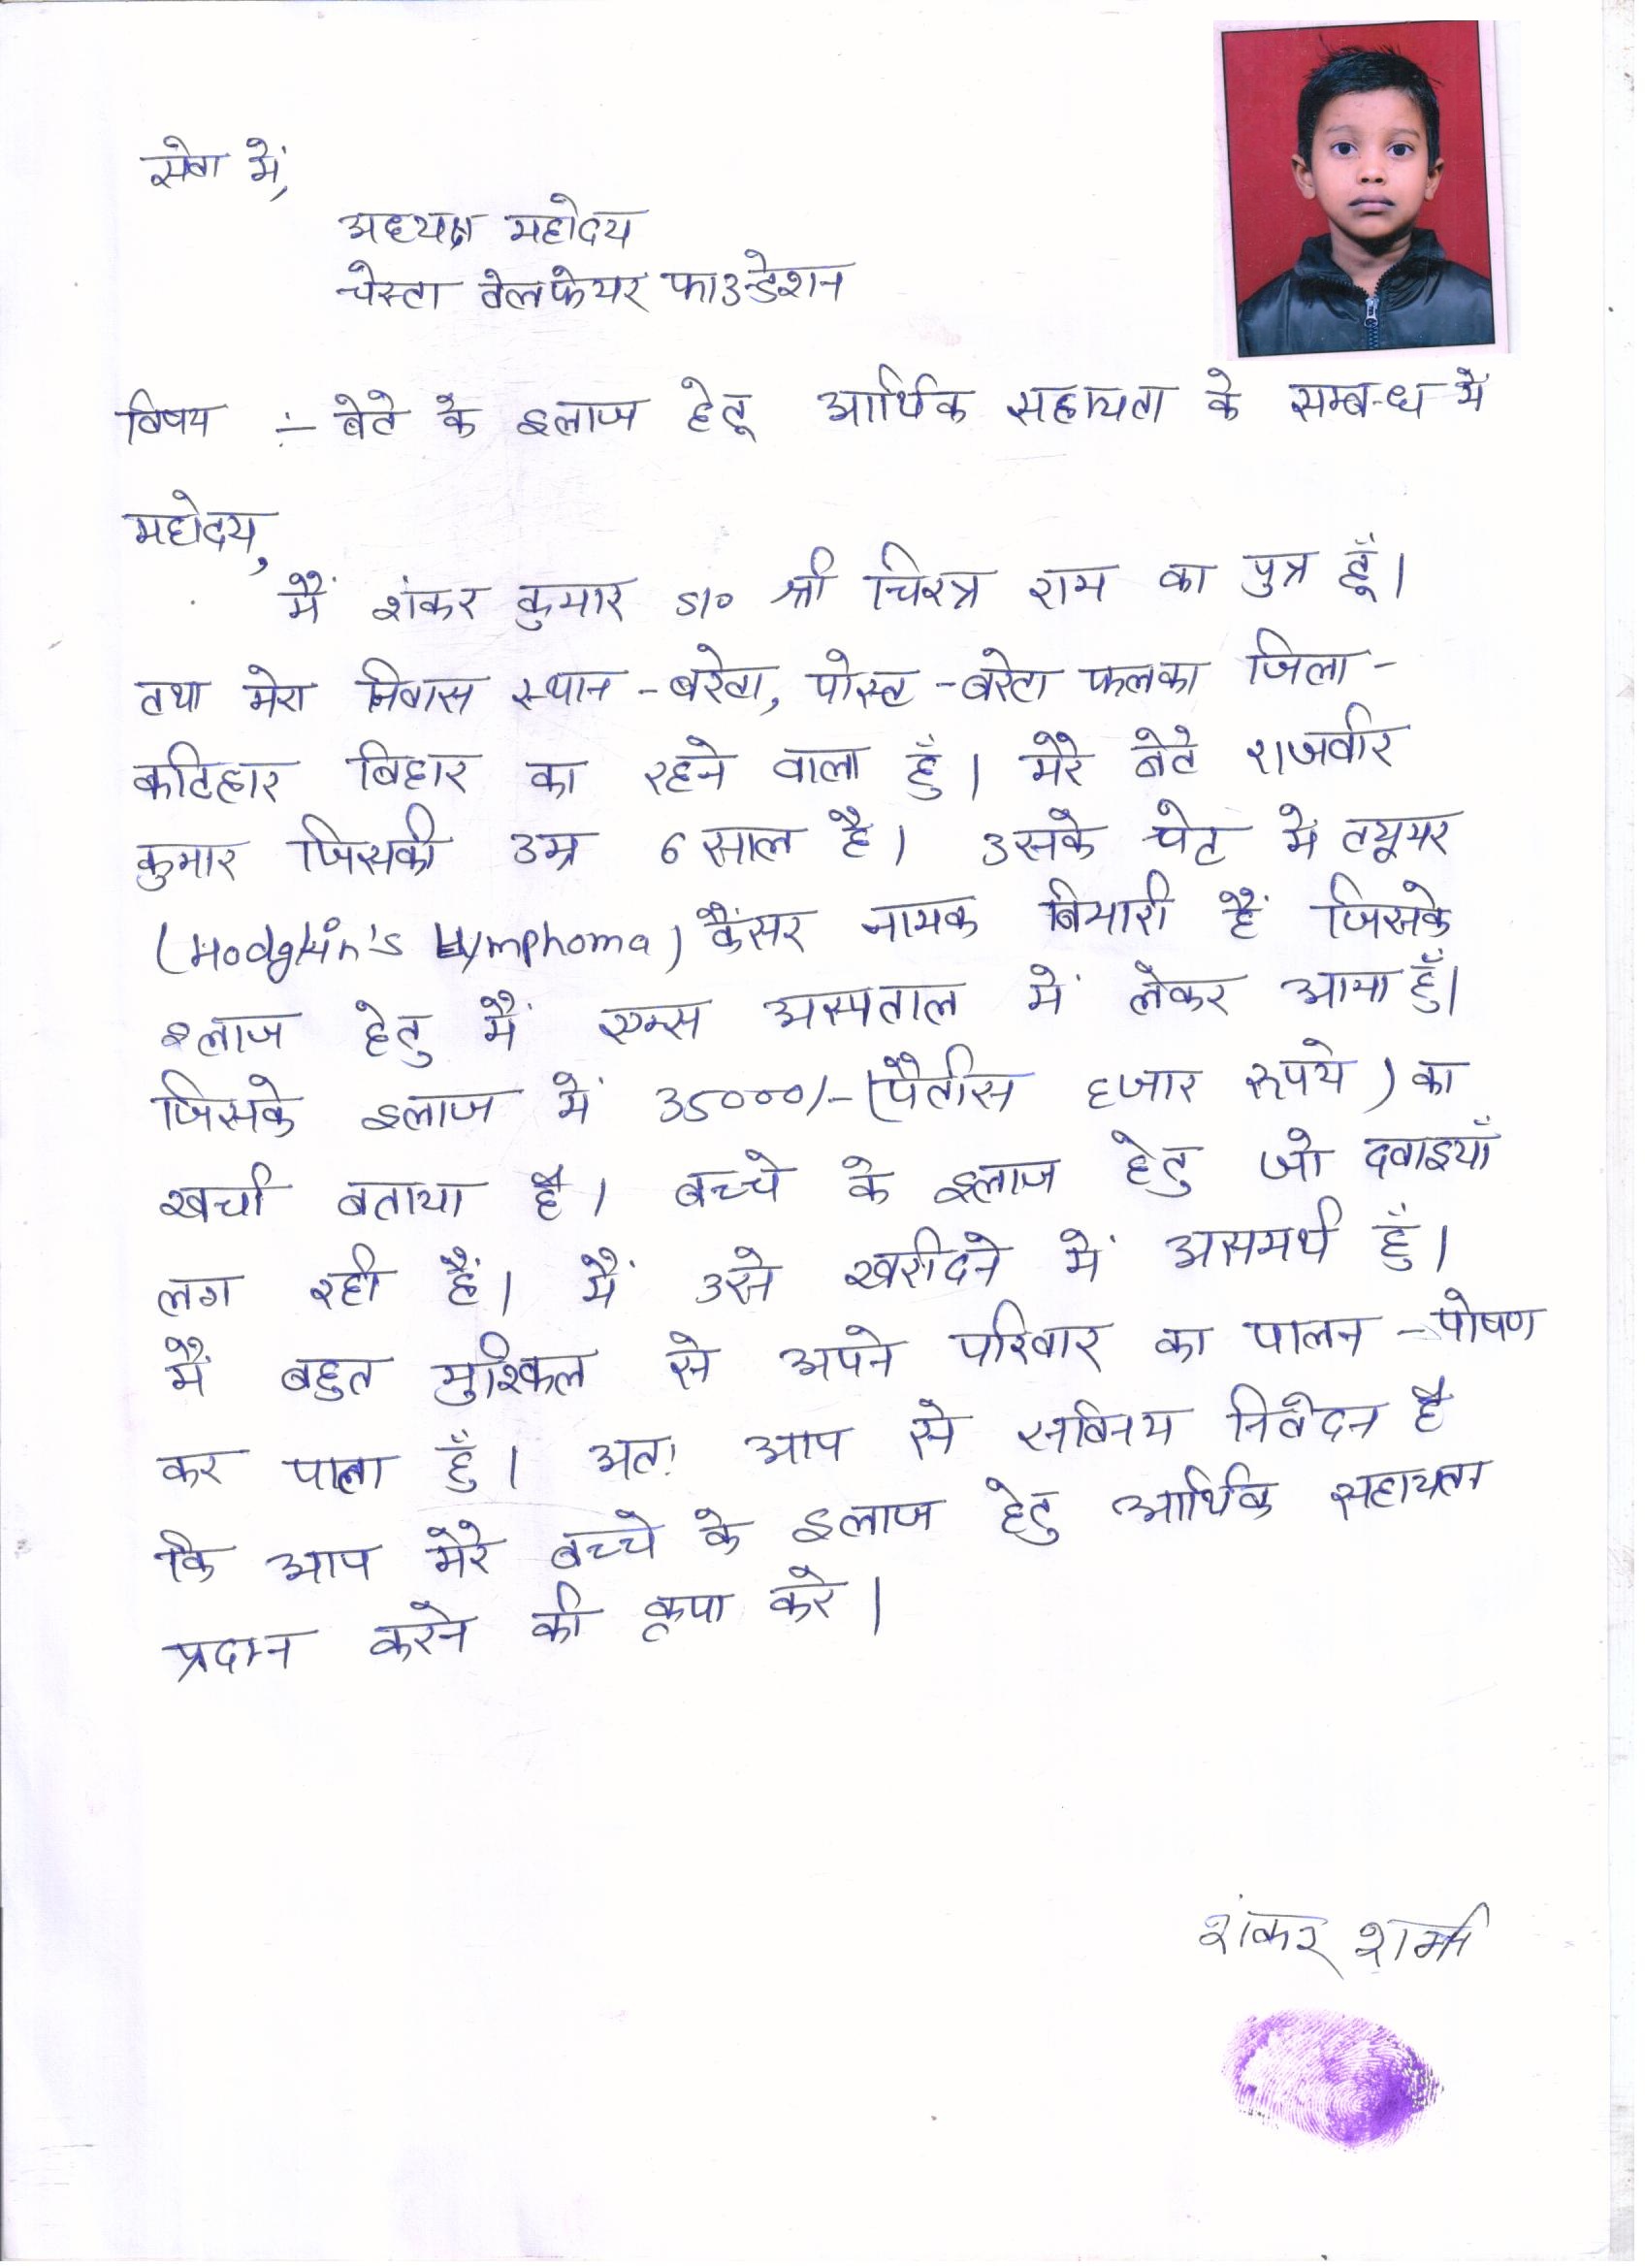 सेवा में,
अध्यक्ष महोदय
चेस्टा वेलफेयर फाउन्डेशन
विषय :- बेटे के इलाज हेतू आर्थिक सहायता के सम्बन्ध में
महोदय,
मैं शंकर कुमार S/o श्री चिरत्र राम का पुत्र हूँ।
तथा मेरा निवास स्थान - बरेटा, पोस्ट - बरेटा फलका जिला -
कटिहार बिहार का रहने वाला हुँ। मेरे बेटे राजवीर
कुमार जिसकी उम्र 6 साल है। उसके पेट में टयूमर
(Hodgkin's Lymphoma) कैंसर नामक बिमारी हैं जिसके
इलाज हेतु मैं एम्स अस्पताल में लेकर आया हुँ।
जिसके इलाज में 35000/- (पैंतीस हजार रूपये) का
खर्चा बताया है। बच्चे के इलाज हेतु जो दवाइयाँ
लग रही हैं। मैं उसे खरीदने में असमर्थ हुँ।
मैं बहुत मुश्किल से अपने परिवार का पालन - पोषण
कर पाता हुँ। अतः आप से सविनय निवेदन है
कि आप मेरे बच्चे के इलाज हेतु आर्थिक सहायता
प्रदान करने की कृपा करे।
शंकर शर्मा